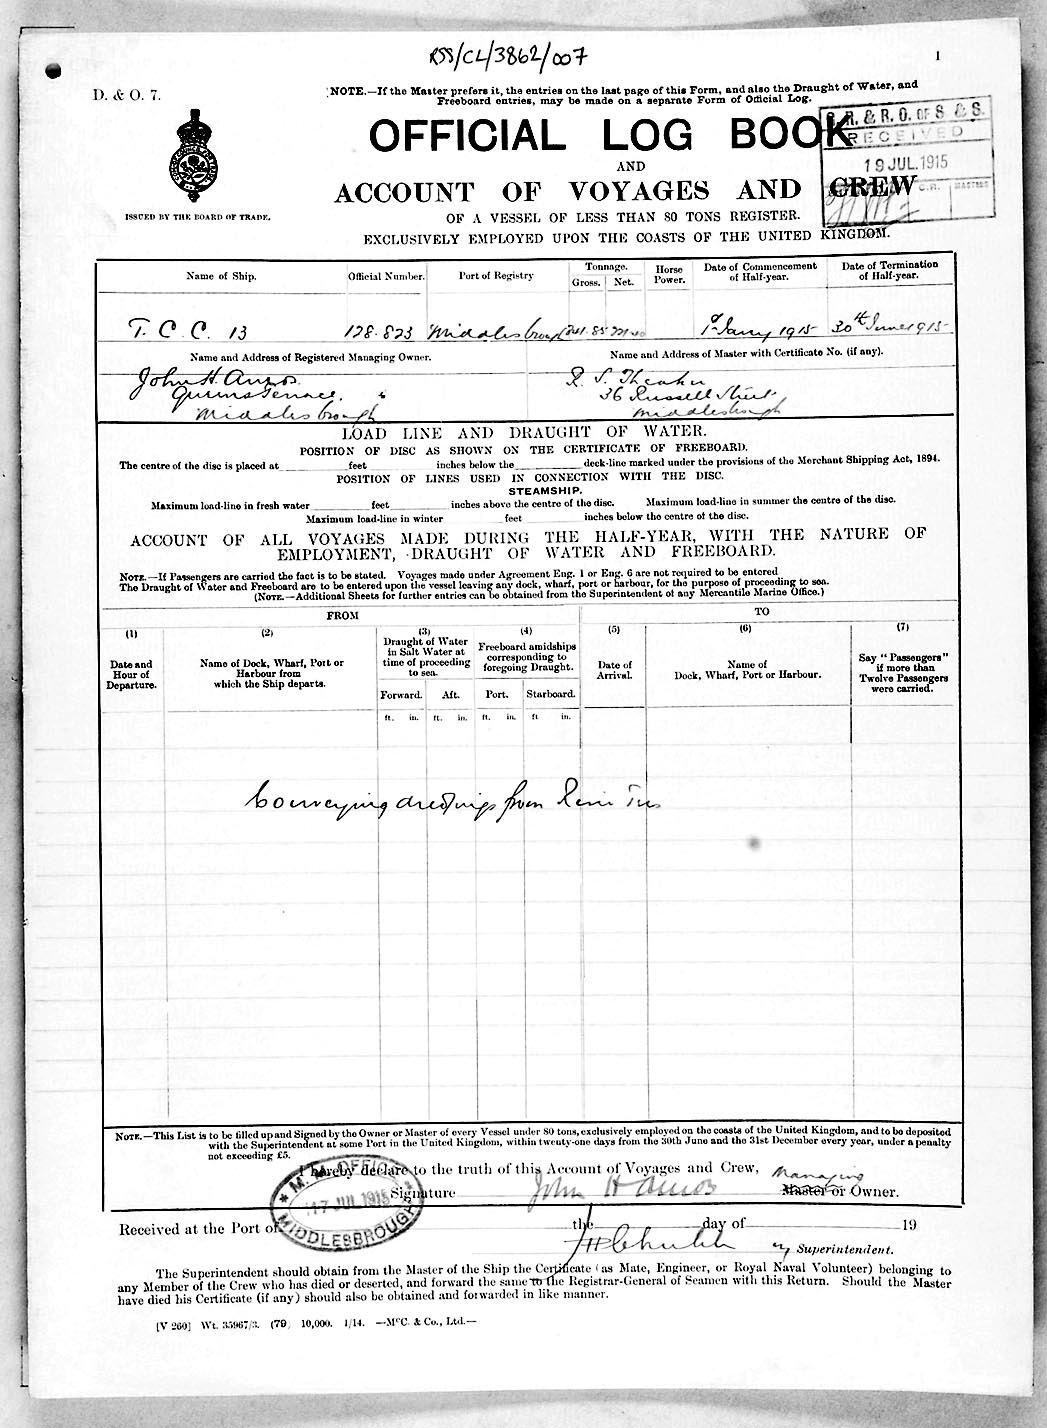 RSS/CL/3862/007
1
D. & O. 7.
NOTE.—If the Master prefers it, the entries on the last page of this Form, and also the Draught of Water, and
Freeboard entries, may be made on a separate Form of Official Log.
OFFICIAL LOG BOOK
R. & R. O. OF S & S.
RECEIVED
19 JUL. 1915
C.R. MASTERS
AND
ACCOUNT OF VOYAGES AND CREW
ISSUED BY THE BOARD OF TRADE.
OF A VESSEL OF LESS THAN 80 TONS REGISTER.
EXCLUSIVELY EMPLOYED UPON THE COASTS OF THE UNITED KINGDOM.
Name of Ship. Official Number. Port of Registry Tonnage. Gross. Net. Horse Power. Date of Commencement of Half-year. Date of Termination of Half-year.
T. C. C. 13 128.823 Middlesbrough 1st Jany 1915 30th June 1915
Name and Address of Registered Managing Owner. Name and Address of Master with Certificate No. (if any).
John H. Amos R. S. Theaker
Queens Terrace, 36 Russell Street
Middlesbrough Middlesbrough
LOAD LINE AND DRAUGHT OF WATER.
POSITION OF DISC AS SHOWN ON THE CERTIFICATE OF FREEBOARD.
The centre of the disc is placed at feet inches below the deck-line marked under the provisions of the Merchant Shipping Act, 1894.
POSITION OF LINES USED IN CONNECTION WITH THE DISC.
STEAMSHIP.
Maximum load-line in fresh water feet inches above the centre of the disc. Maximum load-line in summer the centre of the disc.
Maximum load-line in winter feet inches below the centre of the disc.
ACCOUNT OF ALL VOYAGES MADE DURING THE HALF-YEAR, WITH THE NATURE OF
EMPLOYMENT, DRAUGHT OF WATER AND FREEBOARD.
NOTE.—If Passengers are carried the fact is to be stated. Voyages made under Agreement Eng. 1 or Eng. 6 are not required to be entered
The Draught of Water and Freeboard are to be entered upon the vessel leaving any dock, wharf, port or harbour, for the purpose of proceeding to sea.
(NOTE.—Additional Sheets for further entries can be obtained from the Superintendent of any Mercantile Marine Office.)
FROM TO
(1) (2) (3) (4) (5) (6) (7)
Date and Hour of Departure. Name of Dock, Wharf, Port or Harbour from which the Ship departs. Draught of Water in Salt Water at time of proceeding to sea. Freeboard amidships corresponding to foregoing Draught. Date of Arrival. Name of Dock, Wharf, Port or Harbour. Say "Passengers" if more than Twelve Passengers were carried.
Forward. Aft. Port. Starboard.
ft. in. ft. in. ft. in. ft in.
Conveying dredgings from River Tees
NOTE.—This List is to be filled up and Signed by the Owner or Master of every Vessel under 80 tons, exclusively employed on the coasts of the United Kingdom, and to be deposited
with the Superintendent at some Port in the United Kingdom, within twenty-one days from the 30th June and the 31st December every year, under a penalty
not exceeding £5.
I hereby declare to the truth of this Account of Voyages and Crew, Managing
Signature John H Amos Master or Owner.
M. M. OFFICE
17 JUL 1915
MIDDLESBROUGH
Received at the Port of the day of 19
Superintendent.
The Superintendent should obtain from the Master of the Ship the Certificate (as Mate, Engineer, or Royal Naval Volunteer) belonging to
any Member of the Crew who has died or deserted, and forward the same to the Registrar-General of Seamen with this Return. Should the Master
have died his Certificate (if any) should also be obtained and forwarded in like manner.
[V 260] Wt. 35967/3. (79) 10,000. 1/14. —McC. & Co., Ltd.—